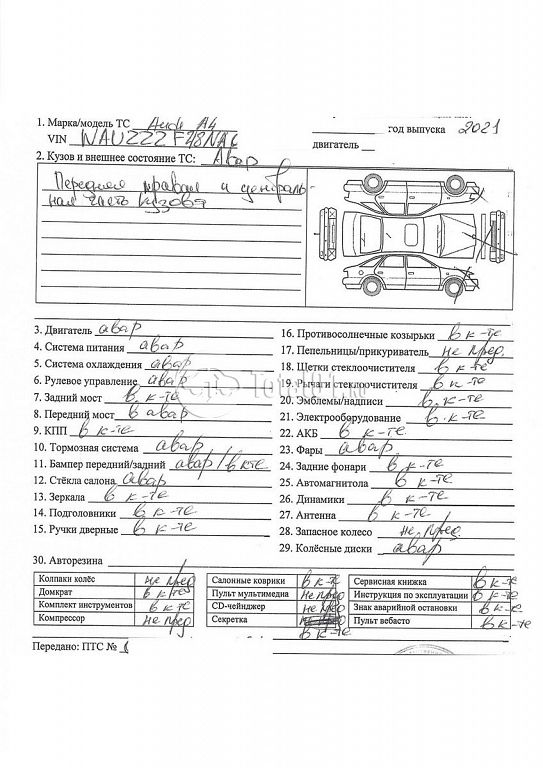 1. Марка/модель ТС Audi A4 год выпуска 2021
VIN WAUZZZF48NA двигатель
2. Кузов и внешнее состояние ТС: Авар
Передняя правая и централь
ная часть кузова
3. Двигатель авар
4. Система питания авар
5. Система охлаждения авар
6. Рулевое управление авар
7. Задний мост в к-те
8. Передний мост в авар
9. КПП в к-те
10. Тормозная система авар
11. Бампер передний/задний авар/в к-те
12. Стёкла салона авар
13. Зеркала в к-те
14. Подголовники в к-те
15. Ручки дверные в к-те
16. Противосолнечные козырьки в к-те
17. Пепельницы/прикуриватель не пред.
18. Щетки стеклоочистителя в к-те
19. Рычаги стеклоочистителя в к-те
20. Эмблемы/надписи в к-те
21. Электрооборудование в к-те
22. АКБ в к-те
23. Фары авар
24. Задние фонари в к-те
25. Автомагнитола в к-те
26. Динамики в к-те
27. Антенна в к-те
28. Запасное колесо не пред.
29. Колёсные диски авар
30. Авторезина
Колпаки колёс не пред
Домкрат в к-те
Комплект инструментов в к-те
Компрессор не пред
Салонные коврики в к-те
Пульт мультимедиа не пред
CD-чейнджер не пред
Секретка
в к-те
Сервисная книжка в к-те
Инструкция по эксплуатации в к-те
Знак аварийной остановки в к-те
Пульт вебасто в к-те
Передано: ПТС №